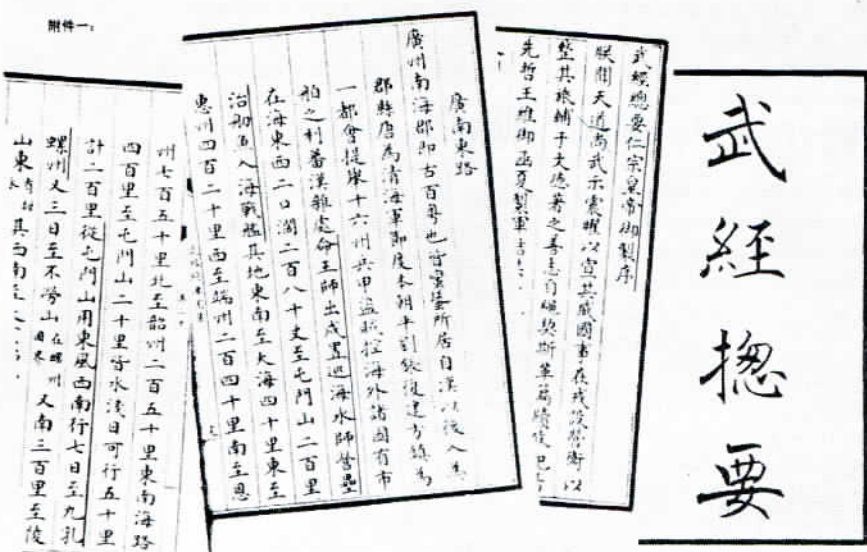 附件一：
武經揔要
武經總要仁宗皇帝御製序
朕聞天道尚武示震耀以宣其威國事在戎設營衛以
整其旅輔于文德著之善志自繩契斯革篇牘後
先哲王維御函夏製軍
廣南東路
廣州南海郡即古百粵也皆蠻蜑所居自漢以後入為
郡縣唐為清海軍節度本朝平劉鋹復建方鎮為
一都會提舉十六州兵甲盜賊控海外諸國有市
舶之利蕃漢雜處命王師出戍置巡海水師營壘
在海東西二口濶二百八十丈至屯門山二百里
治舠魚入海戰艦其地東南至大海四十里東至
惠州四百二十里西至端州二百四十里南至恩
州七百五十里北至韶州二百五十里東南海路
四百里至屯門山二十里皆水淺日可行五十里
計二百里從屯門山用東風西南行七日至九乳
螺州又三日至不勞山在螺州國界又南三百里至陵
山東其西南至